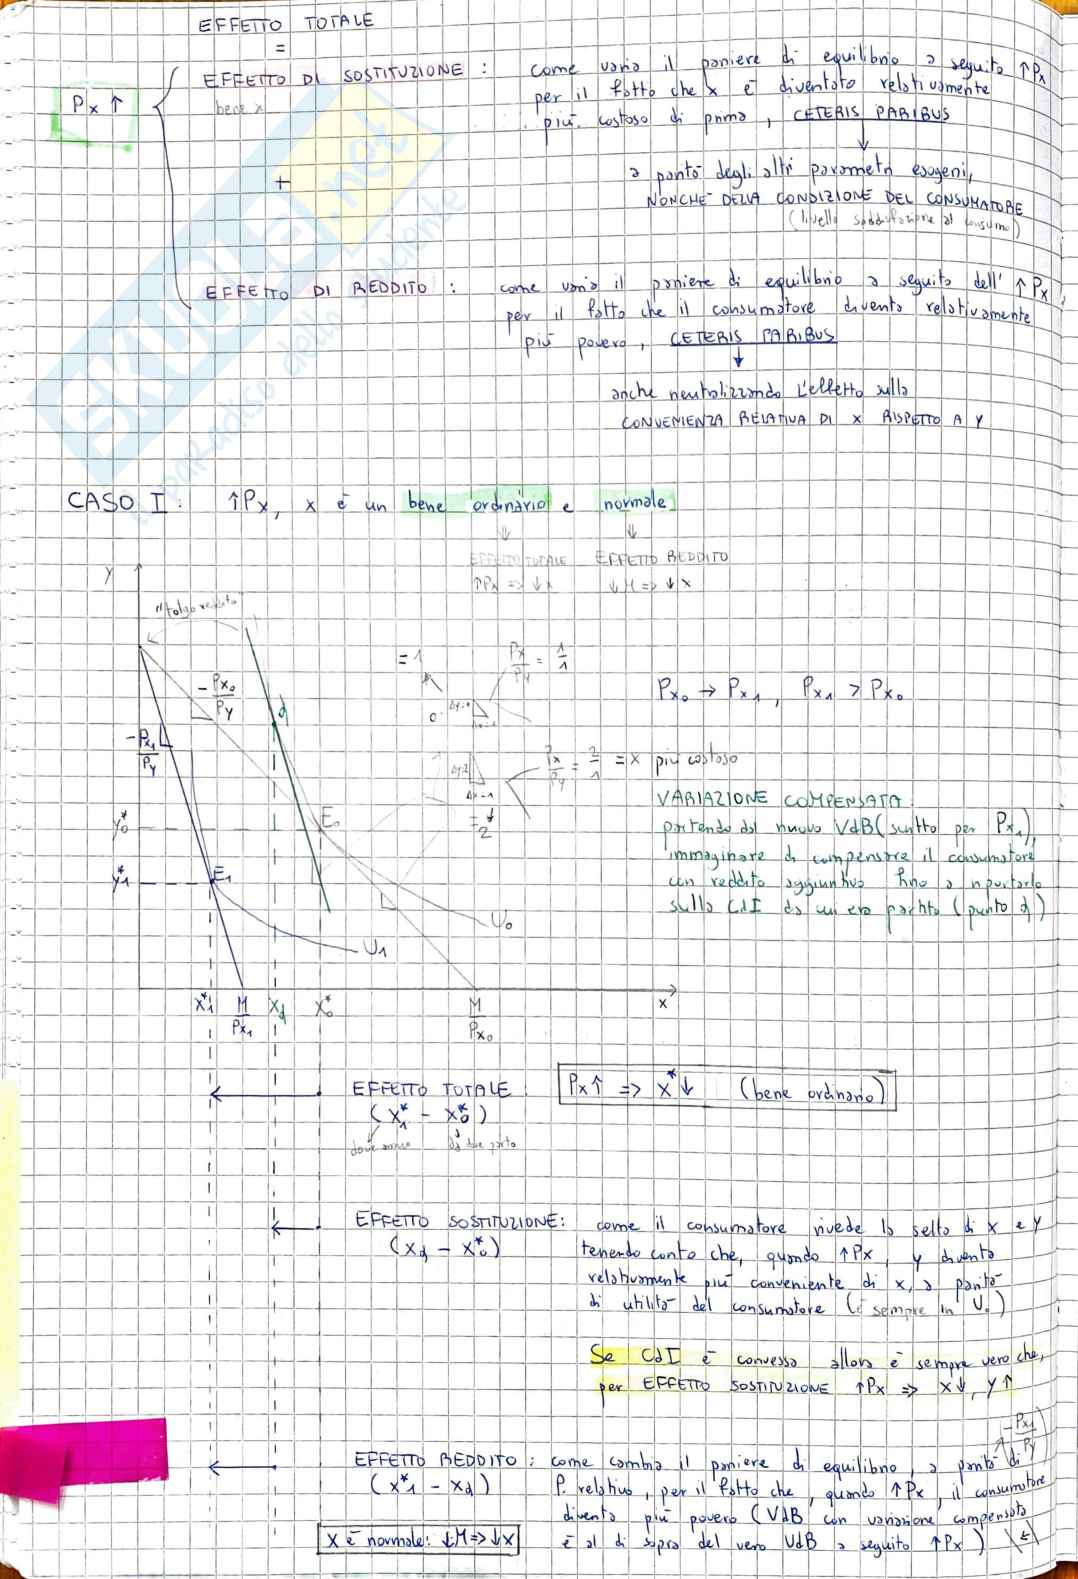 EFFETTO TOTALE
=
EFFETTO DI SOSTITUZIONE : come varia il paniere di equilibrio a seguito ↑Px
bene x
per il fatto che x è diventato relativamente
Px ↑
più costoso di prima, CETERIS PARIBUS
+
a parità degli altri parametri esogeni,
NONCHÉ DELLA CONDIZIONE DEL CONSUMATORE
(livello soddisfazione al consumo)
EFFETTO DI REDDITO : come varia il paniere di equilibrio a seguito dell' ↑Px,
per il fatto che il consumatore diventa relativamente
più povero, CETERIS PARIBUS
anche neutralizzando l'effetto sulla
CONVENIENZA RELATIVA DI x RISPETTO A Y
SKUOLA.net
il paradiso dello studente
CASO I: ↑Px, x è un bene ordinario e normale
EFFETTO TOTALE EFFETTO REDDITO
↑Px => ↓x ↓M => ↓x
Y
"tolgo reddito"
= 1
Px/Py = 1/1
-Px₀/Py
Px₀ → Px₁, Px₁ > Px₀
d
-Px₁/Py
Δy=2
Δx=1
Px/Py = 2/1 = x più costoso
= 2
VARIAZIONE COMPENSATA:
partendo dal nuovo VdB (scritto per Px₁),
immaginare di compensare il consumatore
con reddito aggiuntivo fino a riportarlo
sulla CdI da cui era partito (punto d)
y₀* E₀
y₁* E₁
U₀
U₁
x₁* M/Px₁ xd x₀* M/Px₀ x
EFFETTO TOTALE: Px↑ => x*↓ (bene ordinario)
(x₁* - x₀*)
dove arrivo da dove parto
EFFETTO SOSTITUZIONE: come il consumatore rivede la scelta di x e y
(xd - x₀*) tenendo conto che, quando ↑Px, y diventa
relativamente più conveniente di x, a parità
di utilità del consumatore (è sempre in U₀)
Se CdI è convessa allora è sempre vero che,
per EFFETTO SOSTITUZIONE ↑Px => x↓, y↑
-Px₁/Py
EFFETTO REDDITO: come cambia il paniere di equilibrio, a parità di
(x₁* - xd) P. relativo, per il fatto che, quando ↑Px, il consumatore
diventa più povero (VdB con variazione compensata
x è normale: ↓M => ↓x è al di sopra del vero VdB a seguito ↑Px)